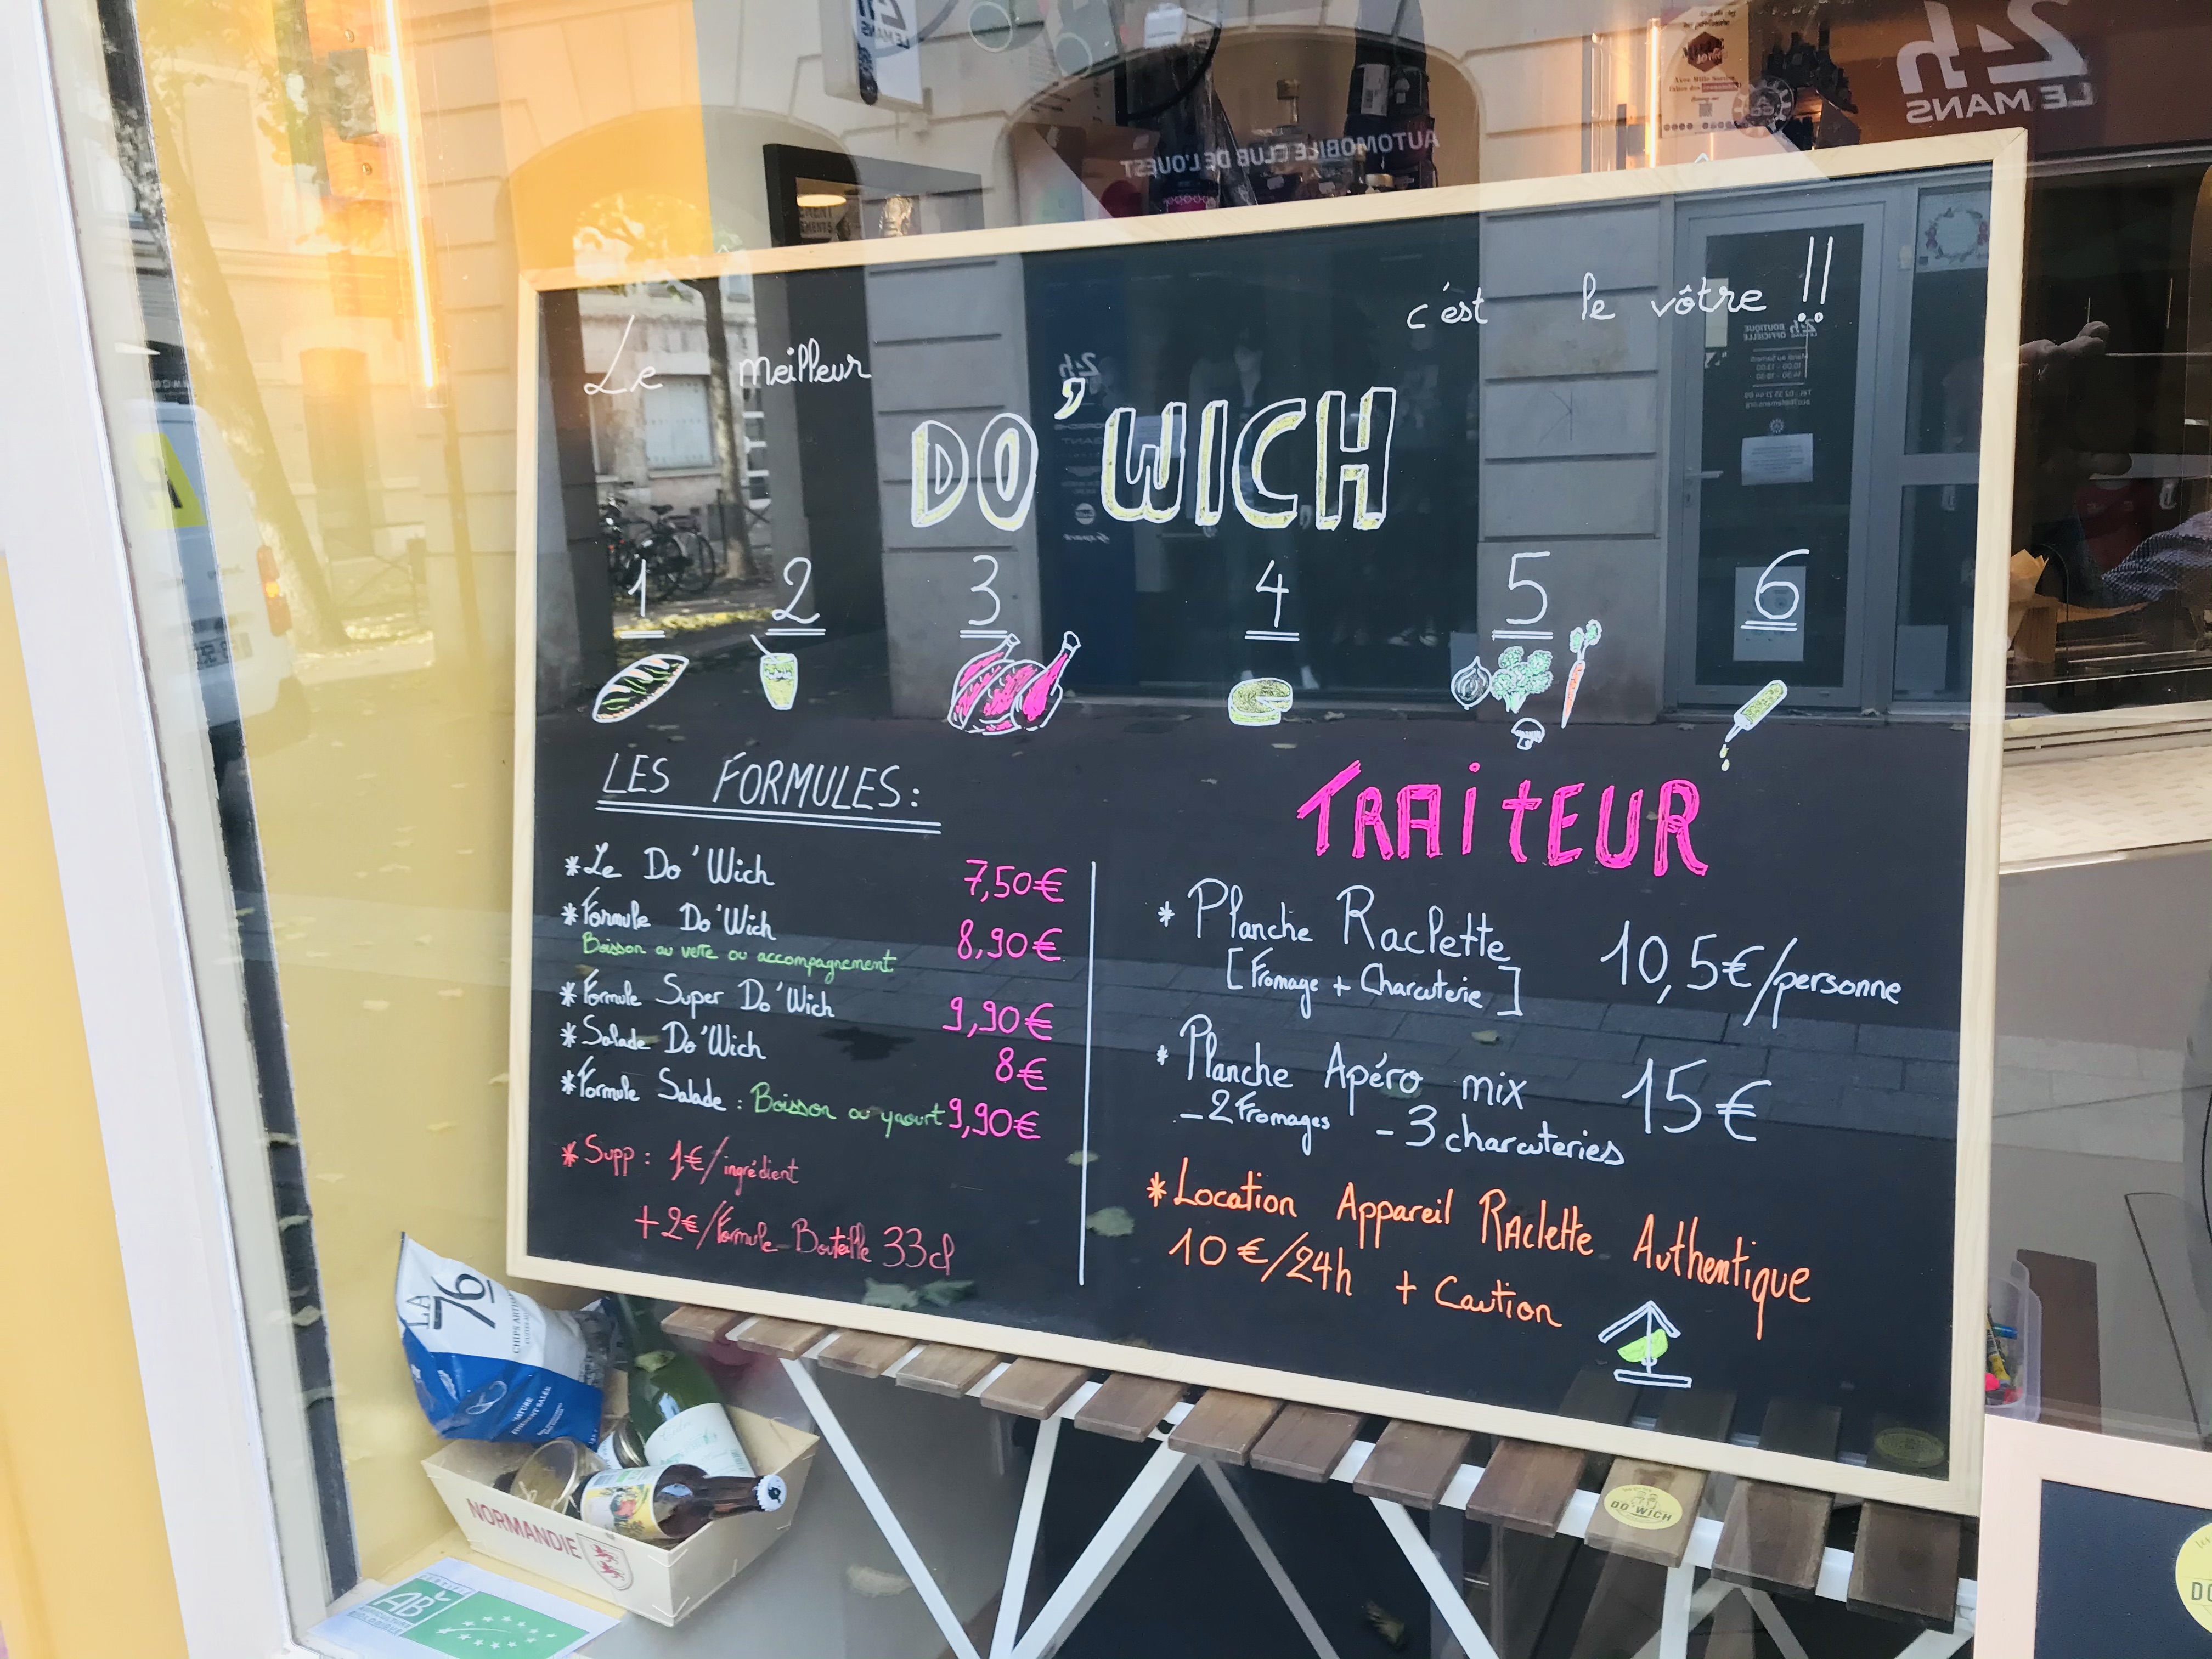 24h
LE MANS
24h
LE MANS
AUTOMOBILE CLUB DE L'OUEST
Le meilleur
c'est le vôtre !!
DO'WICH
1 2 3 4 5 6
LES FORMULES:
*Le Do'Wich 7,50€
*Formule Do'Wich 8,90€
Boisson au verre ou accompagnement
*Formule Super Do'Wich 9,90€
*Salade Do'Wich 8€
*Formule Salade : Boisson ou yaourt 9,90€
*Supp : 1€/ingrédient
+2€/Formule Bouteille 33cl
TRAiTEUR
* Planche Raclette 10,5€/personne
[Fromage + Charcuterie]
* Planche Apéro mix 15€
-2 Fromages -3 charcuteries
*Location Appareil RAclette Authentique
10€/24h + Caution
24h
BOUTIQUE
OFFICIELLE
LA
76
CHIPS
NATURE
NORMANDIE
AB
DO WICH